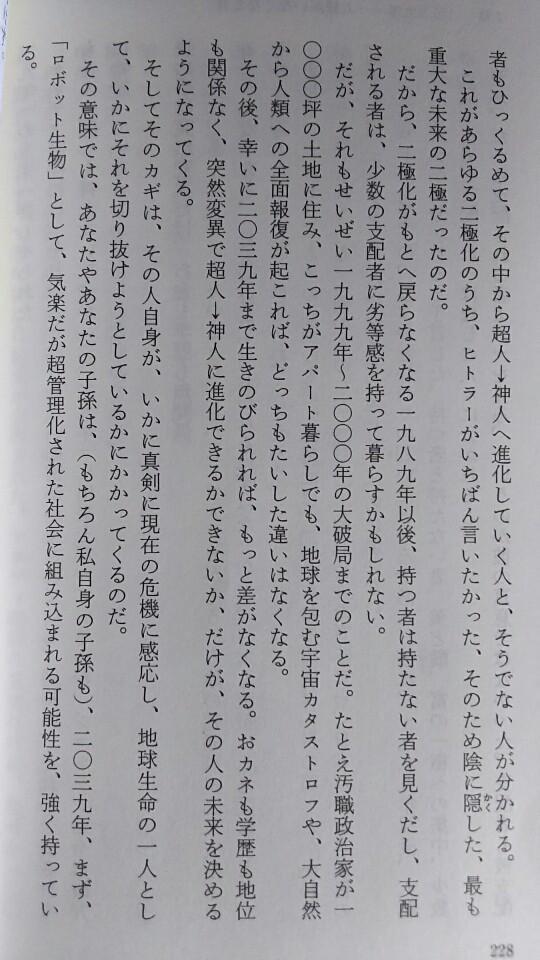 者もひっくるめて、その中から超人→神人へ進化していく人と、そうでない人が分かれる。
これがあらゆる二極化のうち、ヒトラーがいちばん言いたかった、そのため陰に隠かくした、最も
重大な未来の二極だったのだ。
だから、二極化がもとへ戻らなくなる一九八九年以後、持つ者は持たない者を見くだし、支配
される者は、少数の支配者に劣等感を持って暮らすかもしれない。
だが、それもせいぜい一九九九年〜二〇〇〇年の大破局までのことだ。たとえ汚職政治家が一
〇〇〇坪の土地に住み、こっちがアパート暮らしでも、地球を包む宇宙カタストロフや、大自然
から人類への全面報復が起これば、どっちもたいした違いはなくなる。
その後、幸いに二〇三九年まで生きのびられれば、もっと差がなくなる。おカネも学歴も地位
も関係なく、突然変異で超人→神人に進化できるかできないか、だけが、その人の未来を決める
ようになってくる。
そしてそのカギは、その人自身が、いかに真剣に現在の危機に感応し、地球生命の一人とし
て、いかにそれを切り抜けようとしているかにかかってくるのだ。
その意味では、あなたやあなたの子孫は、（もちろん私自身の子孫も）、二〇三九年、まず、
「ロボット生物」として、気楽だが超管理化された社会に組み込まれる可能性を、強く持ってい
る。
228